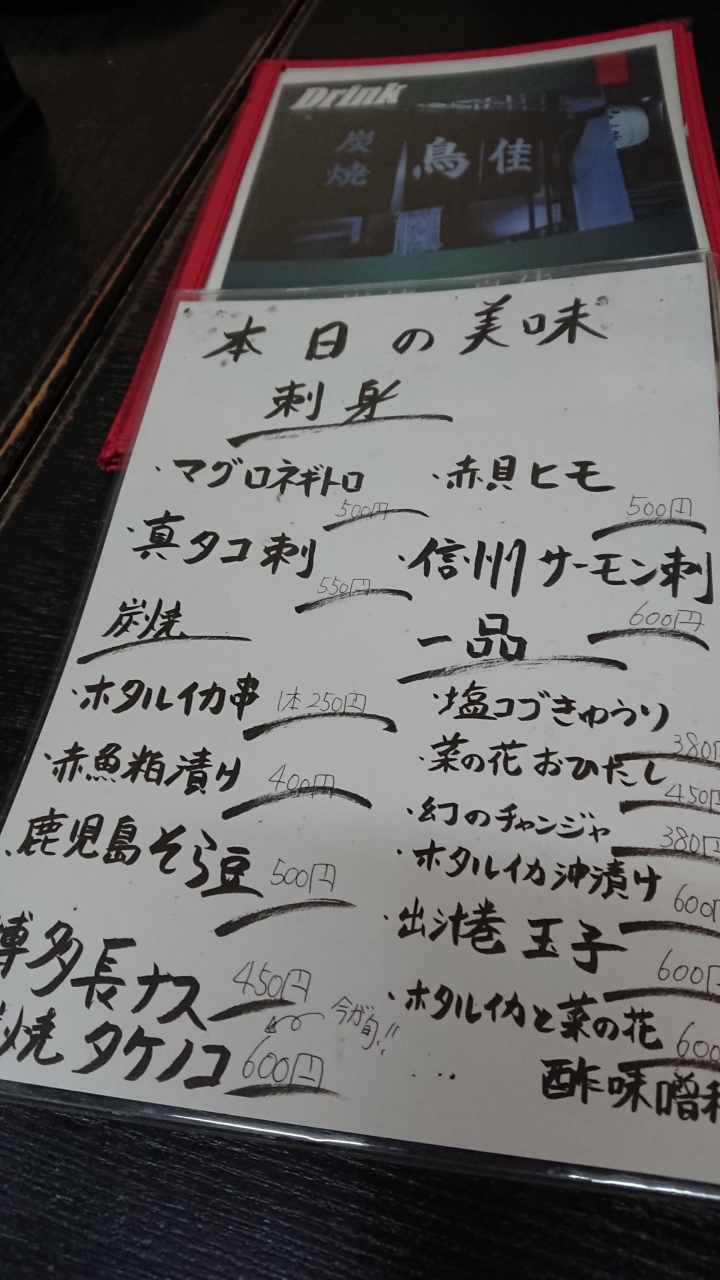 Drink
炭焼 鳥佳
本日の美味
刺身
・マグロネギトロ 500円
・赤貝ヒモ 500円
・真タコ刺 550円
・信州サーモン刺 600円
炭焼
・ホタルイカ串 1本250円
・赤魚粕漬け 400円
・鹿児島そら豆 500円
博多長ナス 450円
炭焼 タケノコ 600円
今が旬!!
一品
・塩コブきゅうり 380円
・菜の花おひたし 450円
・幻のチャンジャ 380円
・ホタルイカ沖漬け 600円
・出汁巻玉子 600円
・ホタルイカと菜の花 600
酢味噌和